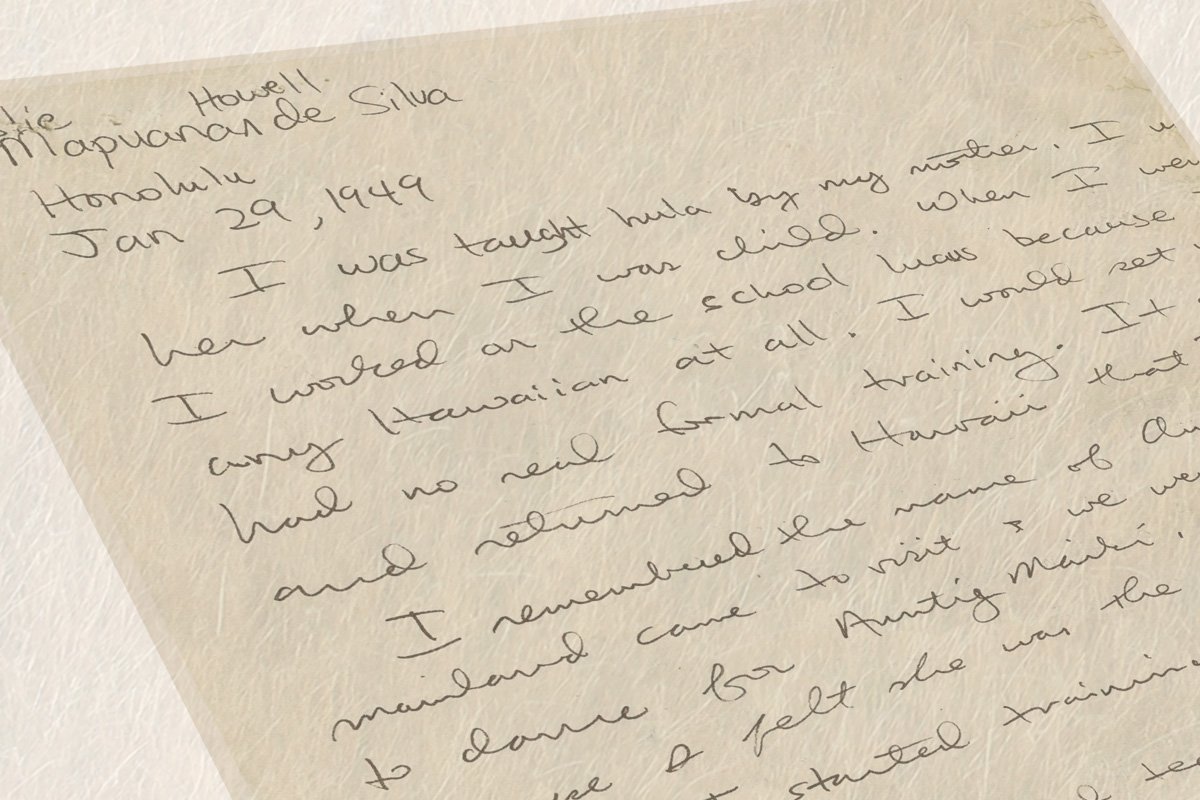 Howell
Mapuanas de Silva
Honolulu
Jan 29, 1949
I was taught hula by my mother. I
her when I was child. When I wer
I worked on the school because
any Hawaiian at all. I would set
had no real formal training. It
and returned to Hawaii that
I remembered the name of
mainland came to visit & we wer
to dance for Auntig Maiki.
I felt she was the
started training